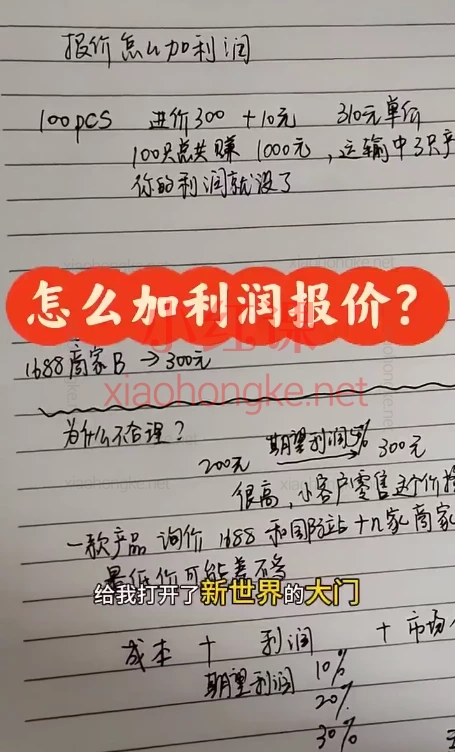 报价怎么加利润
100pcs 进价300 +10元 310元单价
100只总共赚 1000元，运输中3只产
你的利润就没了
怎么加利润报价？
小红课
xiaohongke.net
1688商家B → 300元
为什么不合理？
200元 期望利润5% 300元
很高，小客户零售这个价
一款产品 询价 1688 和国际站十几家商家
最低价可能差不多
给我打开了新世界的大门
成本 + 利润 + 市场
期望利润 10%
20%
30%